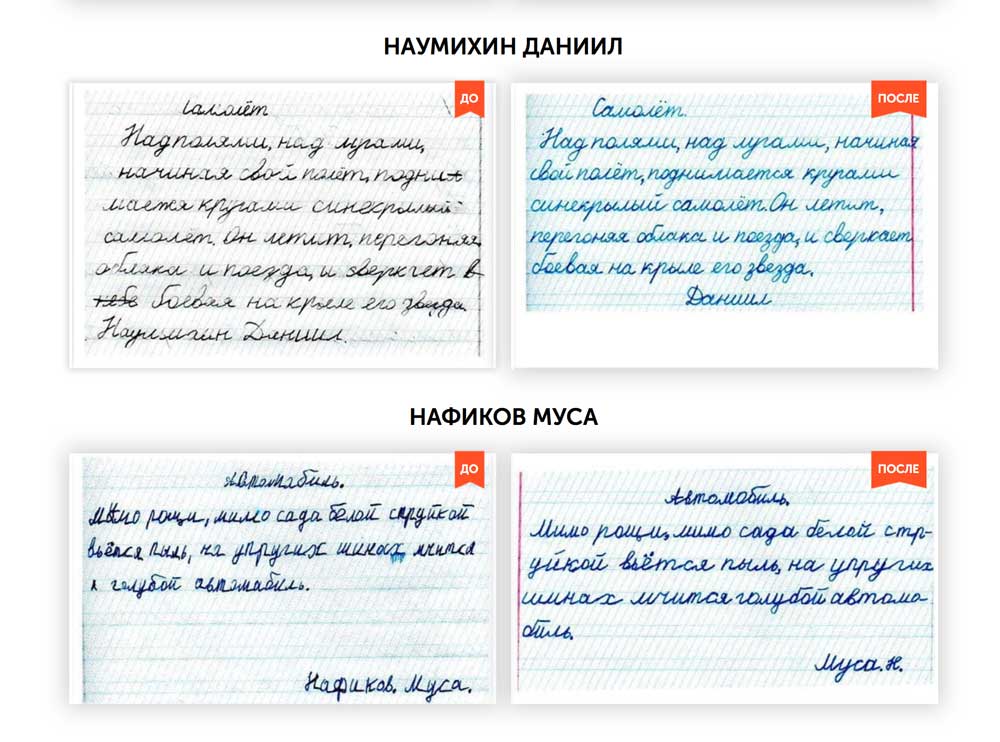 НАУМИХИН ДАНИИЛ
ДО
Самолёт
Над полями, над лугами,
начиная свой полёт, подни
мается кругами синекрылый
самолёт. Он летит, перегоняя
облака и поезда, и сверкает в
боевая на крыле его звезда.
Наумихин Даниил.
ПОСЛЕ
Самолёт.
Над полями, над лугами, начиная
свой полёт, поднимается кругами
синекрылый самолёт. Он летит,
перегоняя облака и поезда, и сверкает
боевая на крыле его звезда.
Даниил
НАФИКОВ МУСА
ДО
Автомобиль.
Мимо рощи, мимо сада белой струйкой
вьётся пыль, на упругих шинах мчится
голубой автомобиль.
Нафиков. Муса.
ПОСЛЕ
Автомобиль.
Мимо рощи, мимо сада белой стр-
уйкой вьётся пыль, на упругих
шинах мчится голубой автомо-
биль.
Муса. Н.